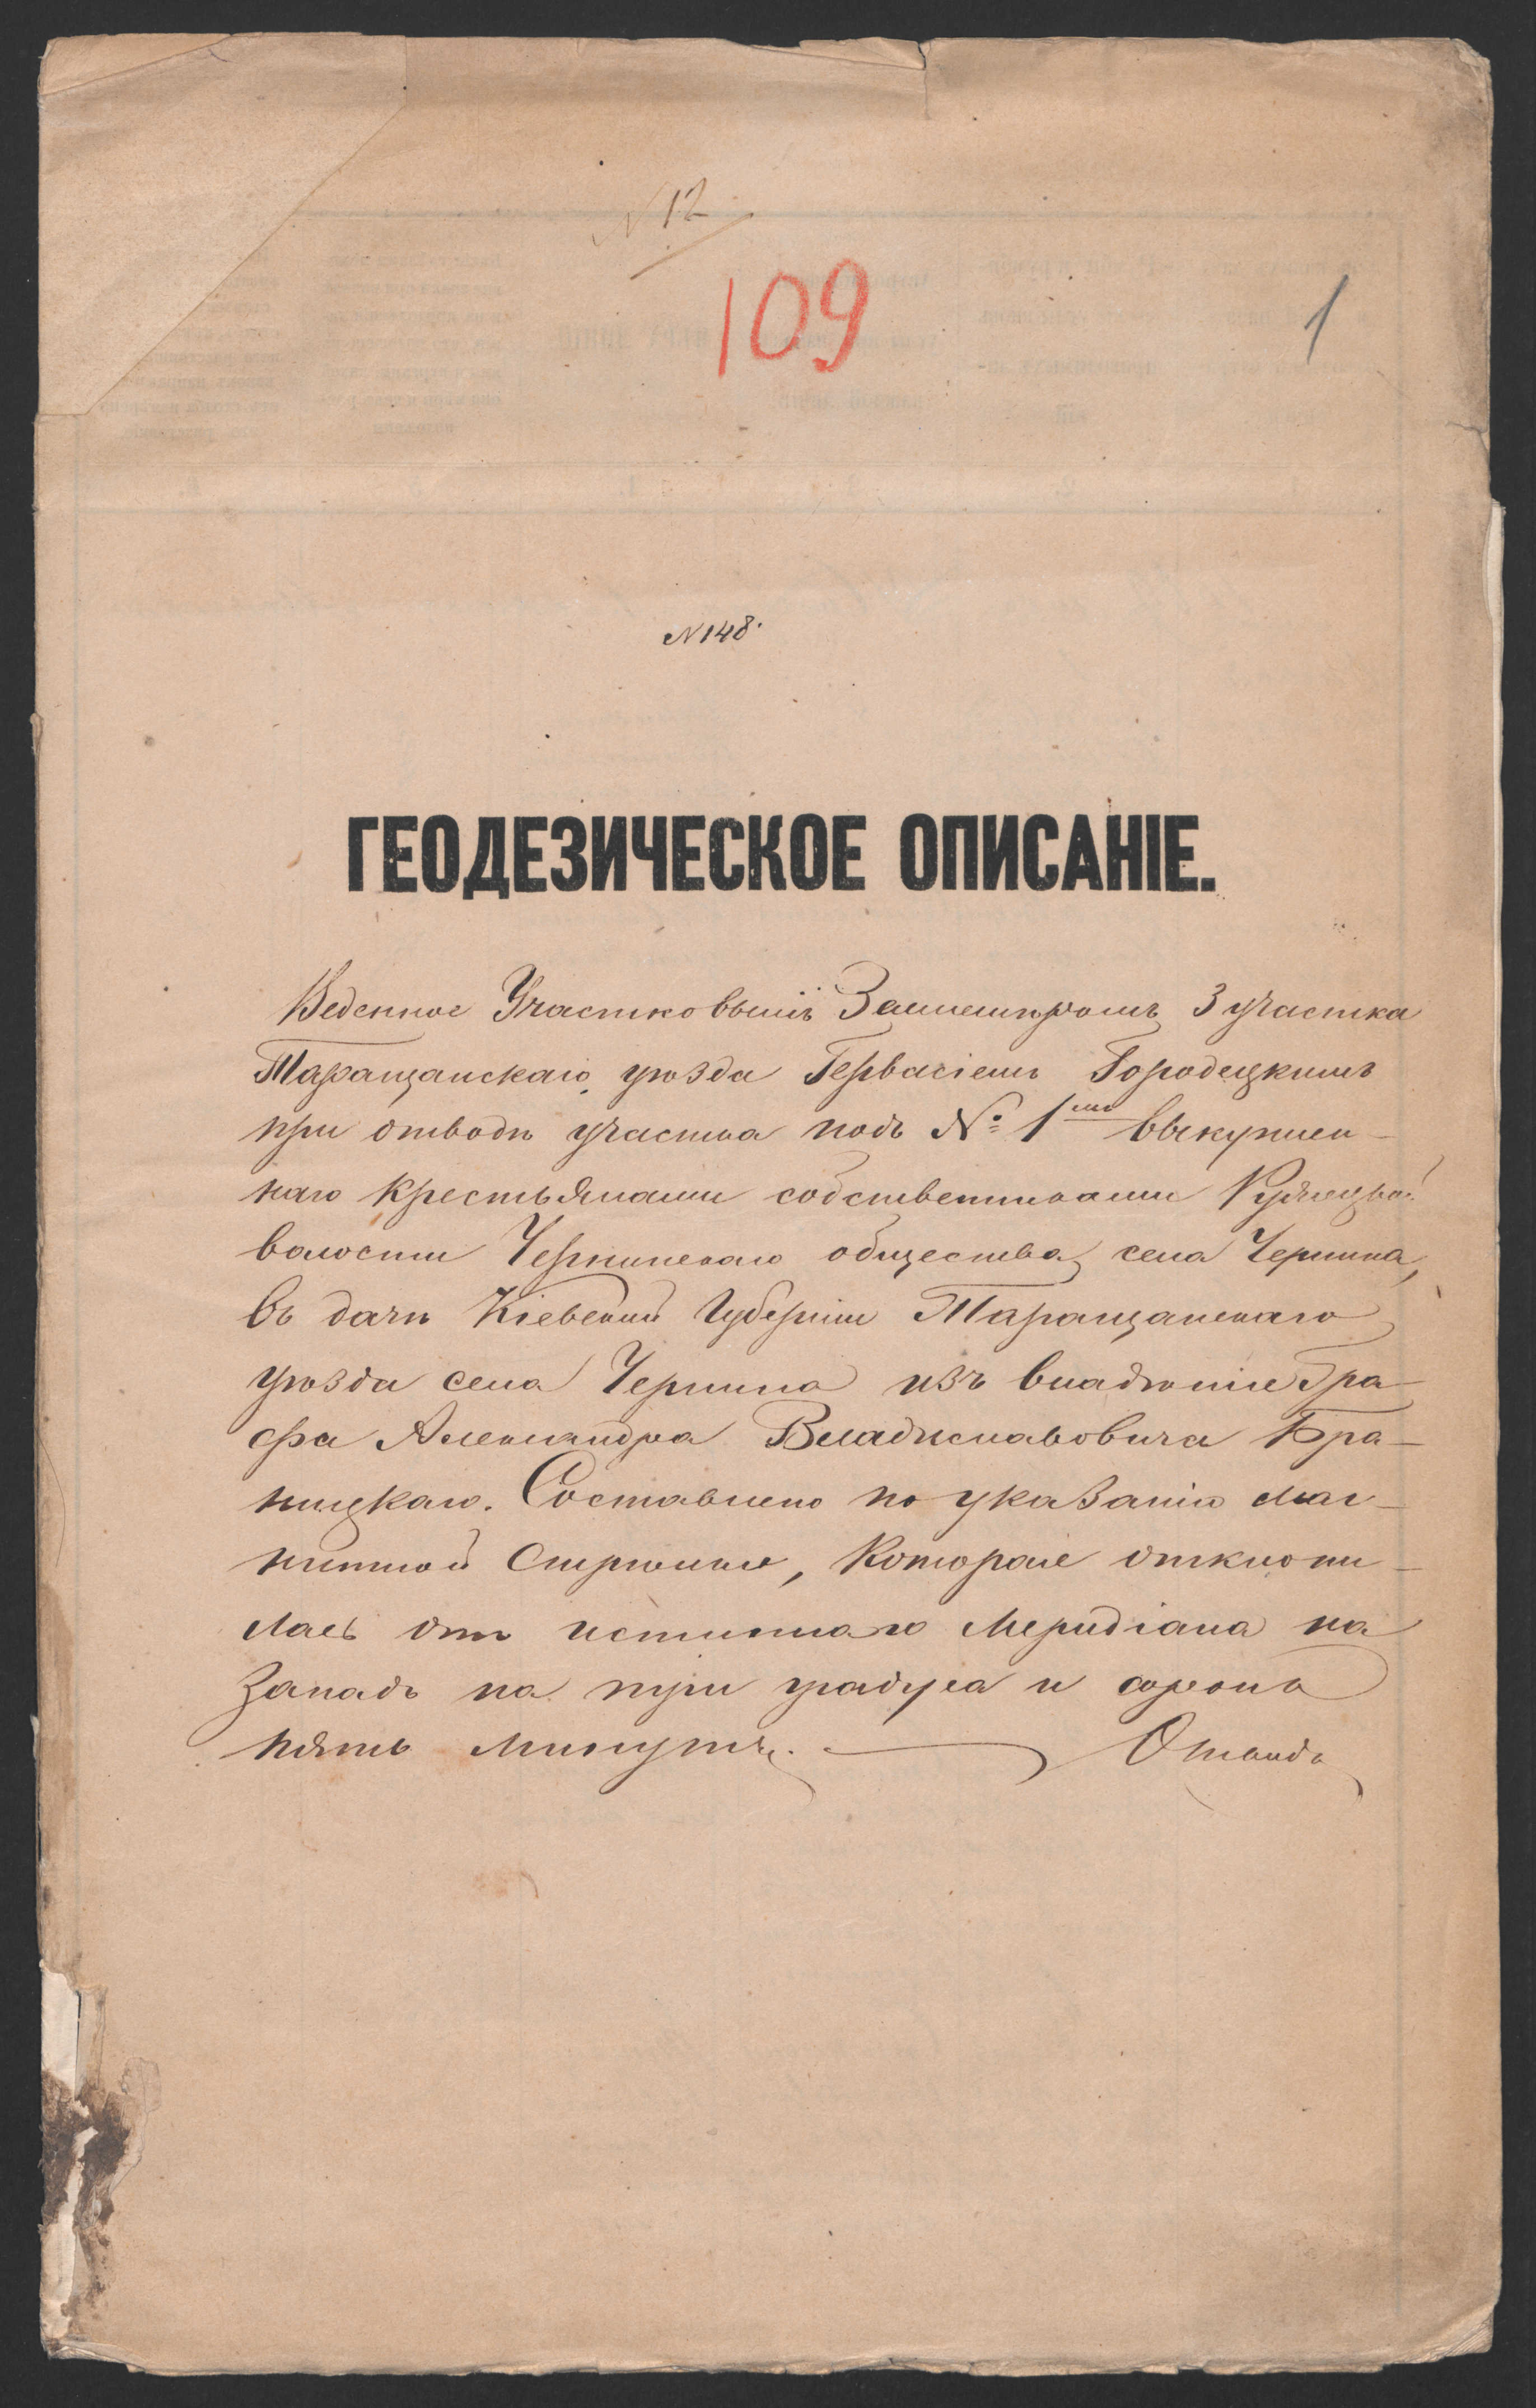 N 12
109
1
N 148.
ГЕОДЕЗИЧЕСКОЕ ОПИСАНІЕ.
Веденное Участковымъ Землемѣромъ 3 участка
Таращанскаго уѣзда Гервасіемъ Городецкимъ
при отводѣ участка подъ № 1мъ выкуплен-
наго крестьянами собственниками
волости Чернинскаго общества, села Чернина,
въ дачѣ Кіевской Губерніи Таращанскаго
уѣзда села Чернина изъ владѣніе Гра-
фа Александра Владиславовича Бра-
ницкаго. Составлено по указанію маг-
нитной Стрѣлки, Которая отклони-
лась отъ истиннаго Меридіана на
Западъ на три градуса и сорокъ
пять минутъ.